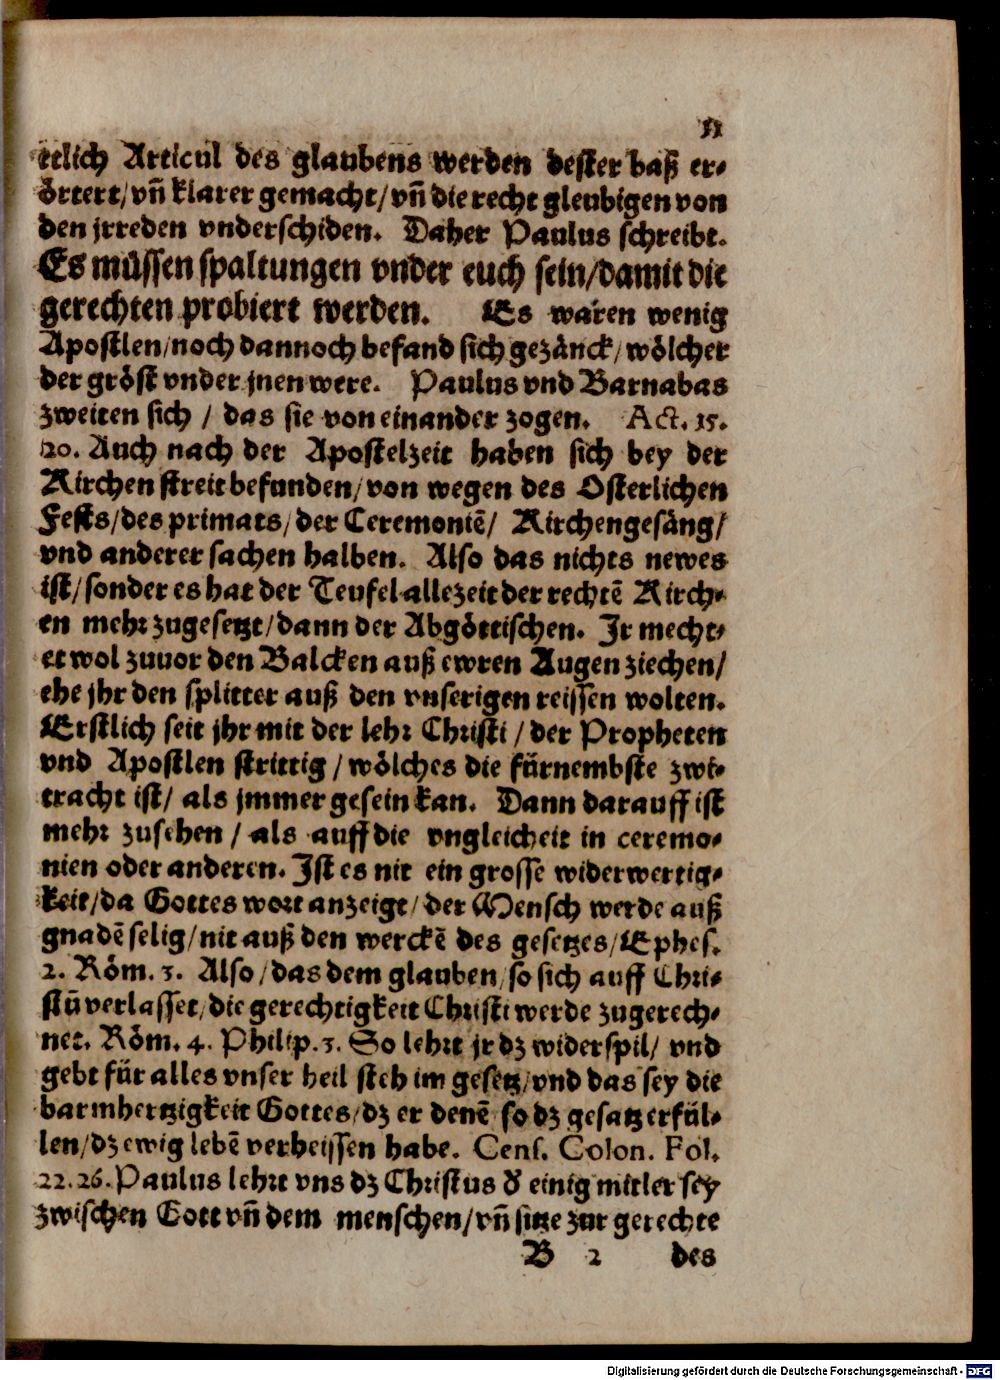 11
etlich Articul des glaubens werden dester baß er-
örtert/vñ klarer gemacht/vñ die recht gleubigen von
den jrreden vnderschiden. Daher Paulus schreibt.
Es müssen spaltungen vnder euch sein/damit die
gerechten probiert werden. Es waren wenig
Apostlen/noch dannoch befand sich gezänck/wölcher
der gröst vnder jnen were. Paulus vnd Barnabas
zweiten sich / das sie von einander zogen. Act. 15.
20. Auch nach der Apostelzeit haben sich bey der
Kirchen streit befunden/von wegen des Osterlichen
Fests/des primats/der Ceremoniẽ/ Kirchengesäng/
vnd anderer sachen halben. Also das nichts newes
ist/sonder es hat der Teufel allezeit der rechtẽ Kirch-
en mehr zugesetzt/dann der Abgöttischen. Jr mecht-
et wol zuuor den Balcken auß ewren Augen ziechen/
ehe jhr den splitter auß den vnserigen reissen wolten.
Erstlich seit jhr mit der lehr Christi / der Propheten
vnd Apostlen strittig / wölches die fürnembste zwi-
tracht ist/ als jmmer gesein kan. Dann darauff ist
mehr zusehen / als auff die vngleicheit in ceremo-
nien oder anderen. Ist es nit ein grosse widerwertig-
keit/da Gottes wort anzeigt/der Mensch werde auß
gnadẽ selig/nit auß den werckẽ des gesetzes/Ephes.
2. Röm. 3. Also/das dem glauben/so sich auff Chri-
stũ verlasset/die gerechtigkeit Christi werde zugerech-
net. Röm. 4. Philip. 3. So lehrt jr dz widerspil/ vnd
gebt für alles vnser heil steh im gesetz/vnd das sey die
barmhertzigkeit Gottes/dz er denẽ so dz gesatz erfül-
len/dz ewig lebẽ verheissen habe. Cens. Colon. Fol.
22. 26. Paulus lehrt vns dz Christus d̕ einig mitler sey
zwischen Gott vñ dem menschen/vñ sitze zur gerechte
B 2 des
Digitalisierung gefördert durch die Deutsche Forschungsgemeinschaft - DFG